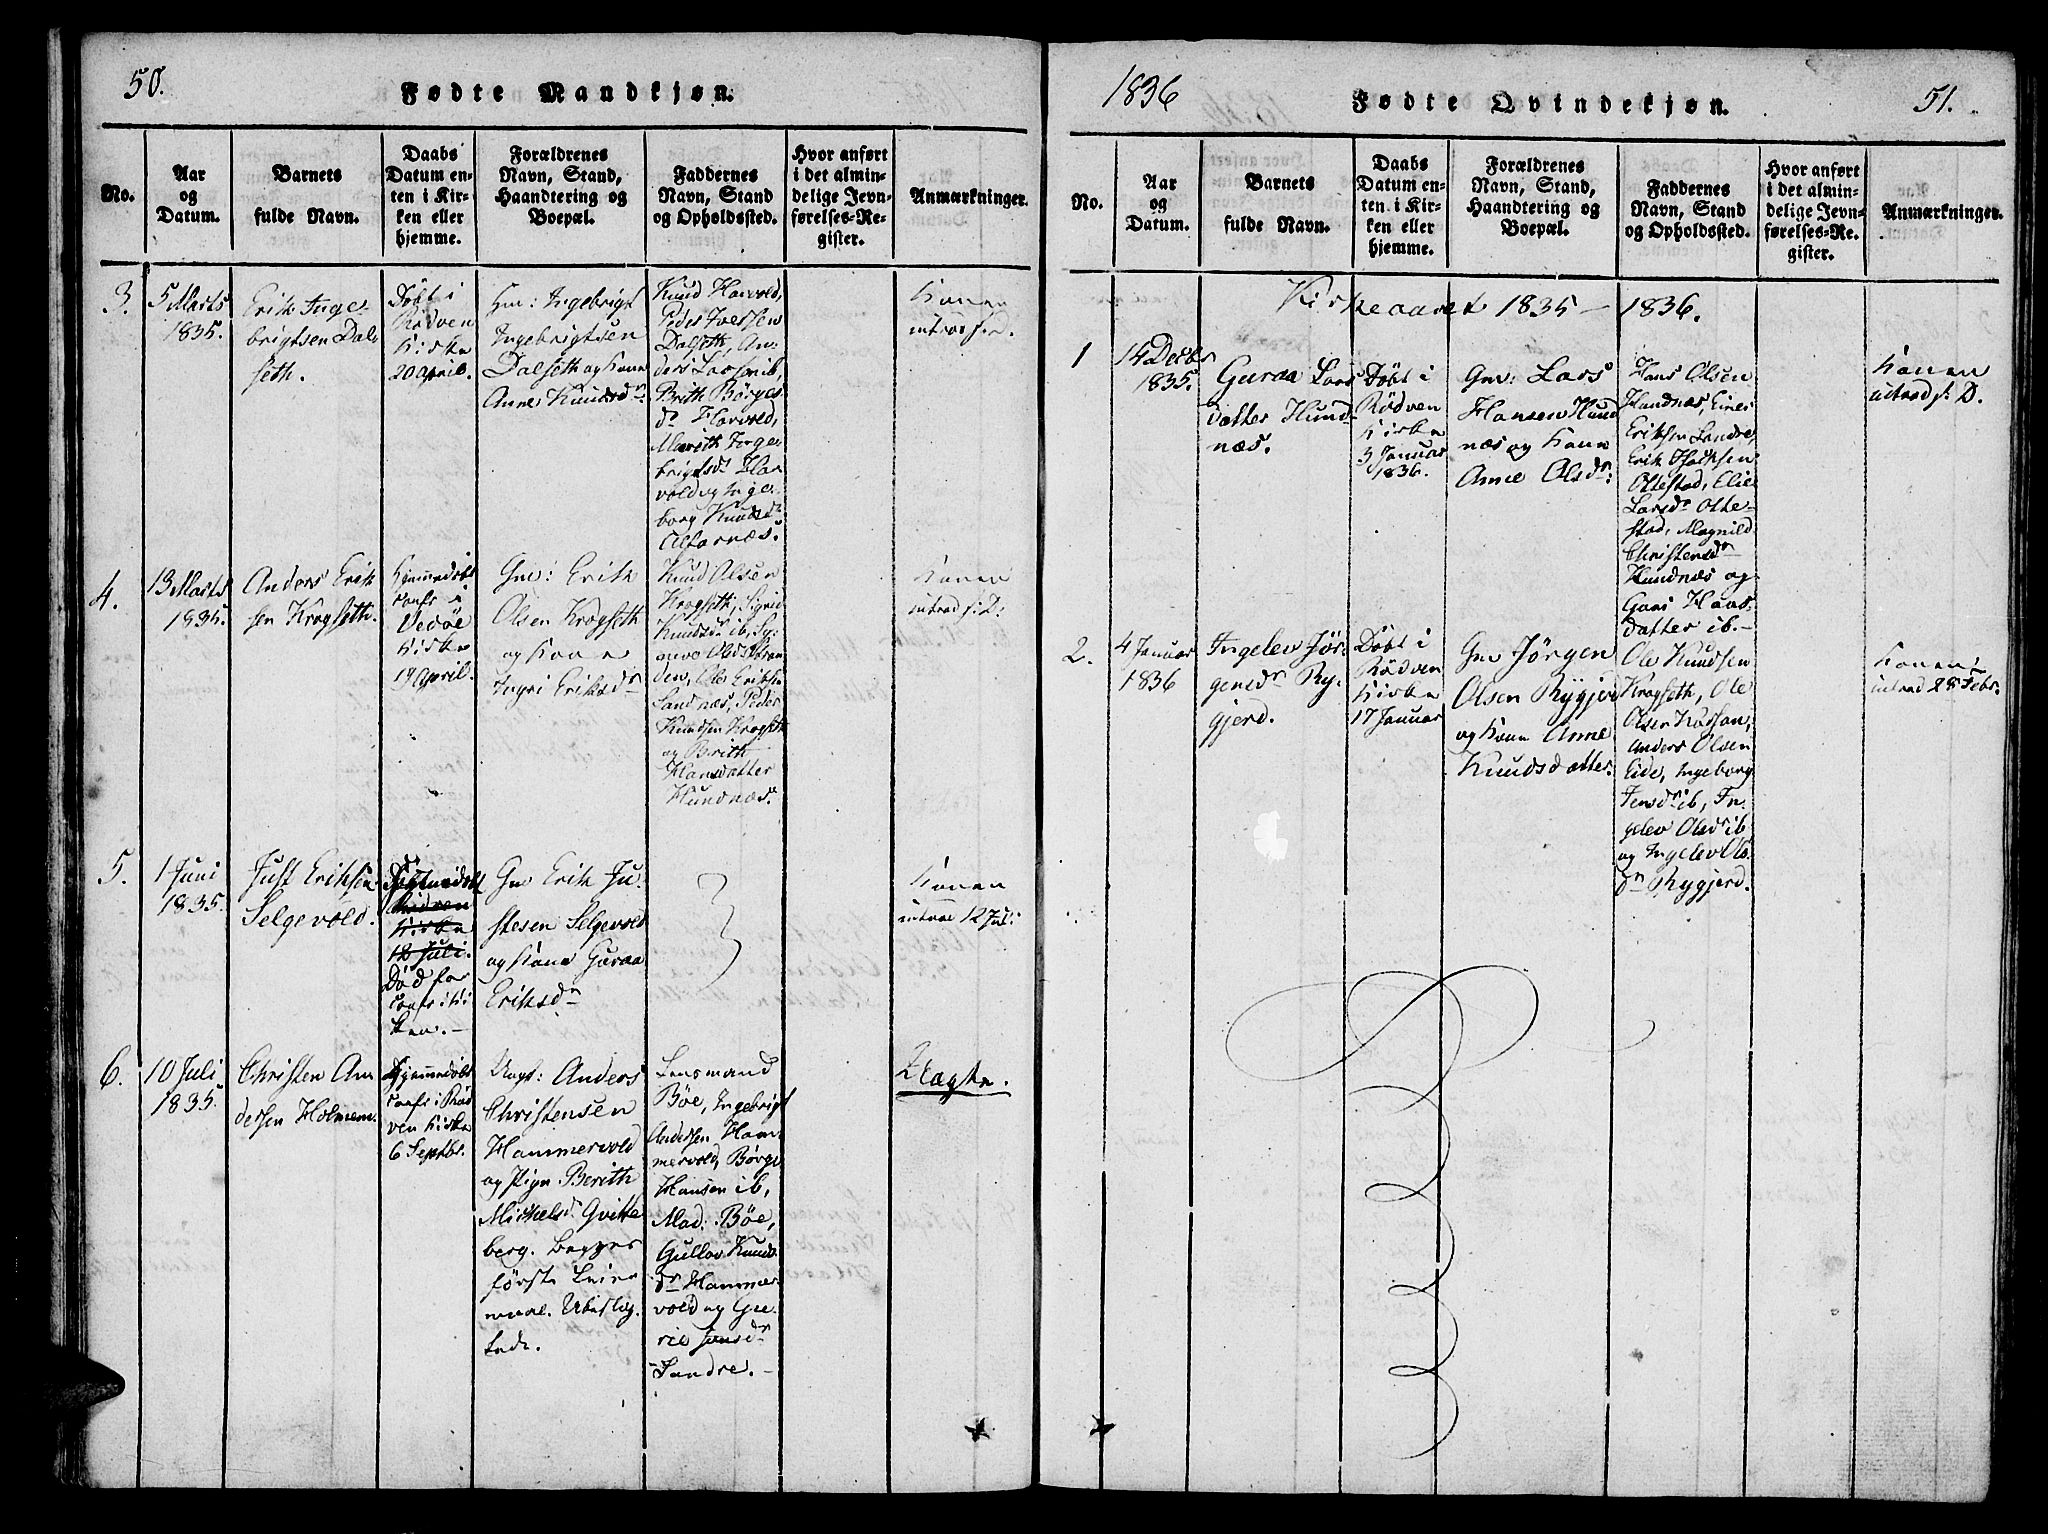 50.
Fødte Mandkjøn.
No.
Aar
og
Datum.
Barnets
fulde Navn.
Daabs
Datum en-
ten i Kir-
ken eller
hjemme.
Forældrenes
Navn, Stand,
Haandtering og
Boepæl.
Faddernes
Navn, Stand
og Opholdssted.
Hvor anført
i det almin-
delige Jevn-
førelses-Re-
gister.
Anmærkninger.
3.
5 Marts
1835.
Erik Inge-
brigtsen Dal-
seth.
Døbt i
Rødven
Kirke
20 April.
Gm: Ingebrigt
Ingebrigtsen
Dalseth og Kone
Anne Knudsdr
Knud Harvold,
Peder Iversen
Dalseth, An-
ders Larsen ib,
Brith Børges-
dr Harvold,
Marith Inge-
brigtsdr Har
vold og Inge-
borg Knudsdr
Alfarnæs.
Konen
introd. s: D.
4.
13 Marts
1835.
Anders Erik
sen Krogseth.
Hjemmedøbt
conf: i
Vedøe
Kirke
19 April.
Gm: Erik
Olsen Krogseth
og Kone
Ingri Eriksdr
Knud Olsen
Krogseth, Sigrid
Knudsdr ib, Sy-
nnve Olsdr Stran
den, Ole Eriksen
Sandnæs, Peder
Knudsen Krogseth
og Berith
Hansdatter
Hundnæs.
Konen
introd s: D:
5.
1 Juni
1835.
Just Eriksen
Selgevold.
Hjemmedøbt
Rødven
Kirke
12 Juli.
Død før
conf: i Ki
rken.-
Gm Erik Ju-
stesen Selgevold
og Kone Guraa
Eriksdr
Konen
introd 12 Jul:
6.
10 Juli
1835.
Christen An
dersen Holmem.
Hjemmedøbt
conf: i Rød
ven Kirke
6 Septbr.
Ungk: Anders
Christensen
Hammervold
og Pign Berith
Mickelsdr Qvitte
berg. Begges
første Leier
maal.
Lensmand
Bøe, Ingebrigt
Andersen Ham-
mervold, Børge
Hansen ib,
Mad: Bøe,
Gullov Knuds
dr Hammer
vold og Gu-
rie Jensdr
Sandre.-
Uægte.
1836
Fødte Qvindekjøn.
51.
No.
Aar
og
Datum.
Barnets
fulde Navn.
Daabs
Datum en-
ten i Kir-
ken eller
hjemme.
Forældrenes
Navn, Stand,
Haandtering og
Boepæl.
Faddernes
Navn, Stand
og Opholdssted.
Hvor anført
i det almin-
delige Jevn-
førelses-Re-
gister.
Anmærkninger.
Kirkeaaret 1835 - 1836.
1
14 Decbr
1835.
Guraa Lars
datter Hund-
næs.
Døbt i
Rødven
Kirke
3 Januar
1836.
Gm: Lars
Hansen Hund
næs og Kone
Anne Olsdr:
Hans Olsen
Hundnæs, Einer
Eriksen Sandre,
Erik
Oltestad, Elie
Larsdr Olte-
stad, Magnild
Christensdr
Hundnæs og
Guri Hans-
datter ib.-
Konen
introd s: D.
2.
4 Januar
1836
Ingelev Jør-
gensdr Ry-
gjerd.
Døbt i
Rødven
Kirke
17 Januar
Gm Jørgen
Olsen Rygjerd
og Kone Anne
Knudsdatter.
Ole Knudsen
Krogseth, Ole
Olsen Korsan,
Anders Olsen
Eide, Ingeborg
Jensdr ib, In-
gelev Olsdr ib
og Ingelev Ols-
dr Rygjerd.
Konen
introd 28 Febr.